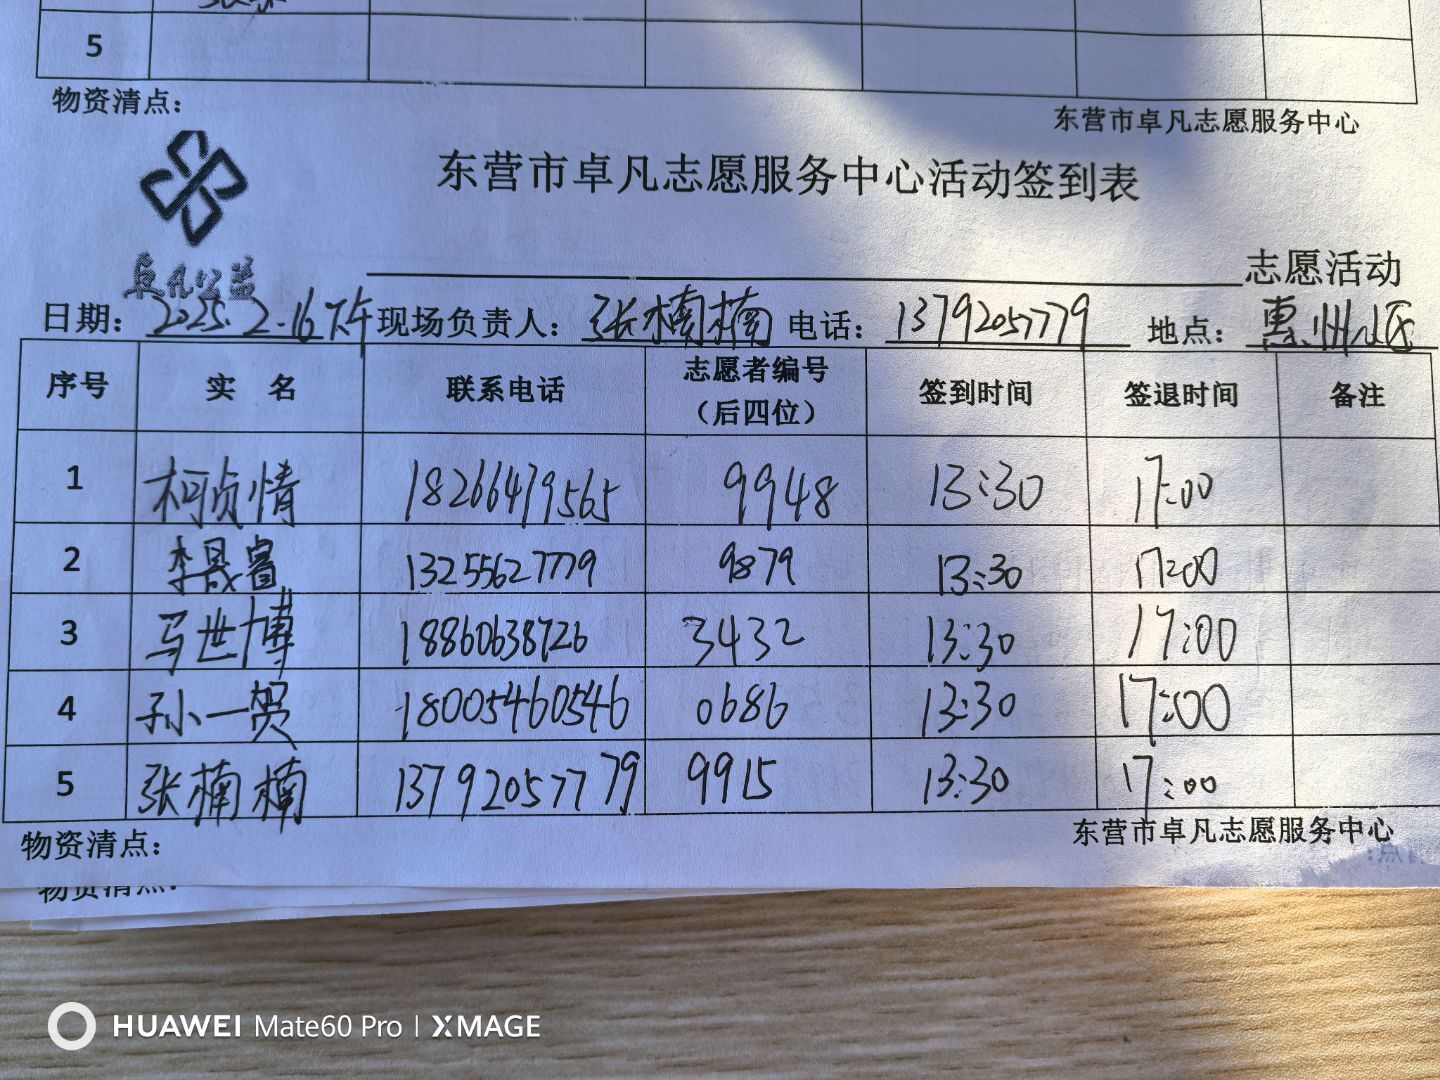 5
物资清点：
东营市卓凡志愿服务中心
东营市卓凡志愿服务中心活动签到表
卓凡公益
志愿活动
日期：2025.2.16下午 现场负责人：张楠楠 电话：13792057779 地点：惠州小区
序号 实 名 联系电话 志愿者编号（后四位） 签到时间 签退时间 备注
1 柯贞情 18266479565 9948 13:30 17:00
2 李晟睿 13255627779 9879 13:30 17:00
3 马世博 18860638726 3432 13:30 17:00
4 孙一贺 18005460546 0686 13:30 17:00
5 张楠楠 13792057779 9915 13:30 17:00
物资清点：
东营市卓凡志愿服务中心
物资清点：
HUAWEI Mate60 Pro | XMAGE